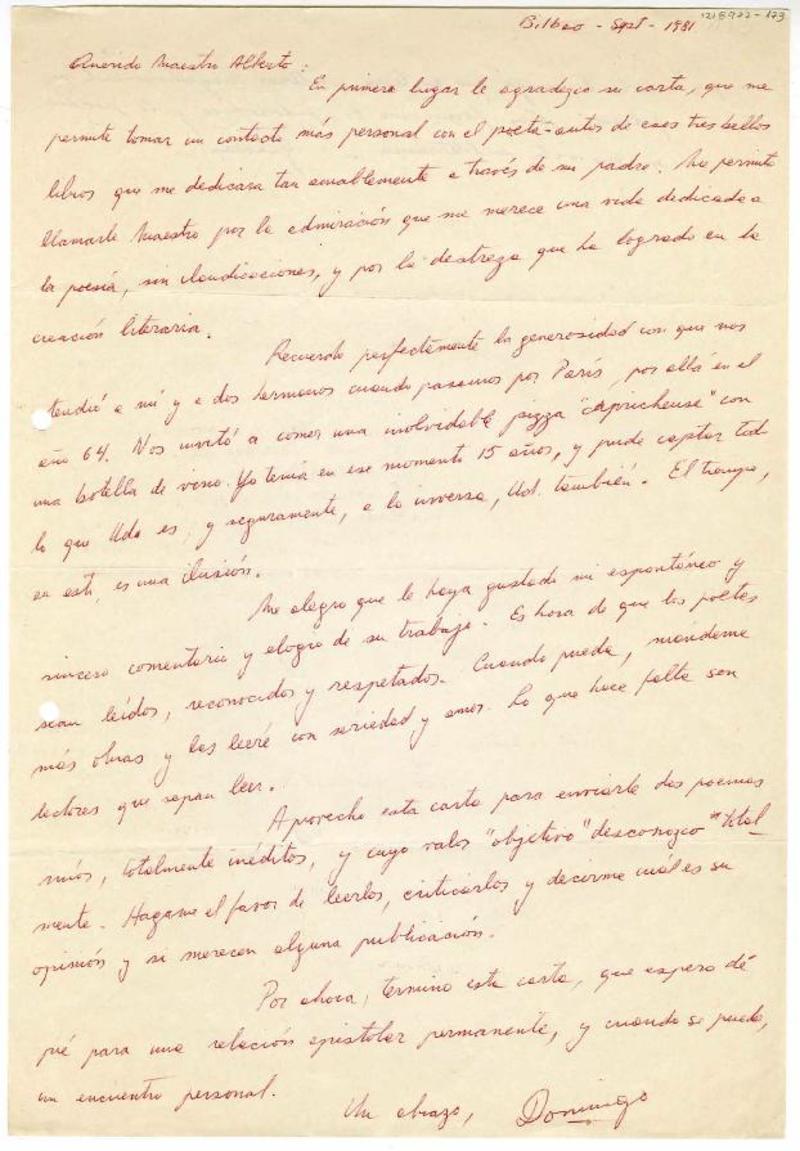 Bilbao - Sept - 1981
218922-173
Querido Maestro Alberto:
En primer lugar le agradezco su carta, que me
permite tomar un contacto más personal con el poeta-autor de esos tres bellos
libros que me dedicara tan amablemente a través de mi padre. Me permito
llamarle Maestro por la admiración que me merece una vida dedicada a
la poesía, sin claudicaciones, y por la destreza que ha logrado en la
creación literaria.
Recuerdo perfectamente la generosidad con que nos
tendió a mí y a dos hermanos cuando pasamos por París, por allá en el
año 64. Nos invitó a comer una inolvidable pizza "capricheuse" con
una botella de vino. Yo tenía en ese momento 15 años, y pude captar todo
lo que Uds es, y seguramente, a lo inversa, Ud. también. El tiempo,
en esto, es una ilusión.
Me alegro que le haya gustado mi espontáneo y
sincero comentario y elogio de su trabajo. Es hora de que los poetas
sean leídos, reconocidos y respetados. Cuando pueda, mándeme
más obras y las leeré con seriedad y amor. Lo que hace falta son
lectores que sepan leer.
Aprovecho esta carta para enviarle dos poemas
míos, totalmente inéditos, y cuyo valor "objetivo" desconozco total
mente. Hágame el favor de leerlos, criticarlos y decirme cuál es su
opinión y si merecen alguna publicación.
Por ahora, termino esta carta, que espero dé
pié para una relación epistolar permanente, y cuando se pueda,
un encuentro personal.
Un abrazo, Domingo